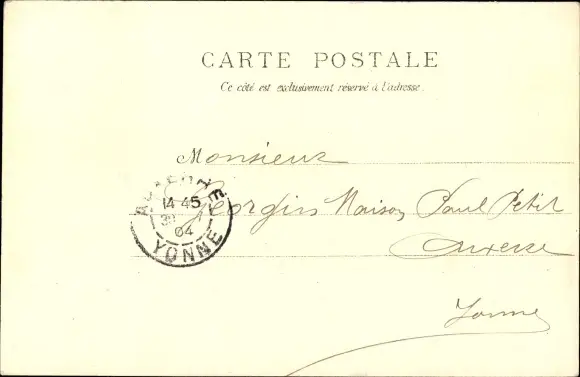 CARTE POSTALE
Ce côté est exclusivement réservé à l'adresse.
Monsieur
Georgin Maison Paul Petit
Auxerre
Yonne
AUXERRE
14 45
30
04
YONNE